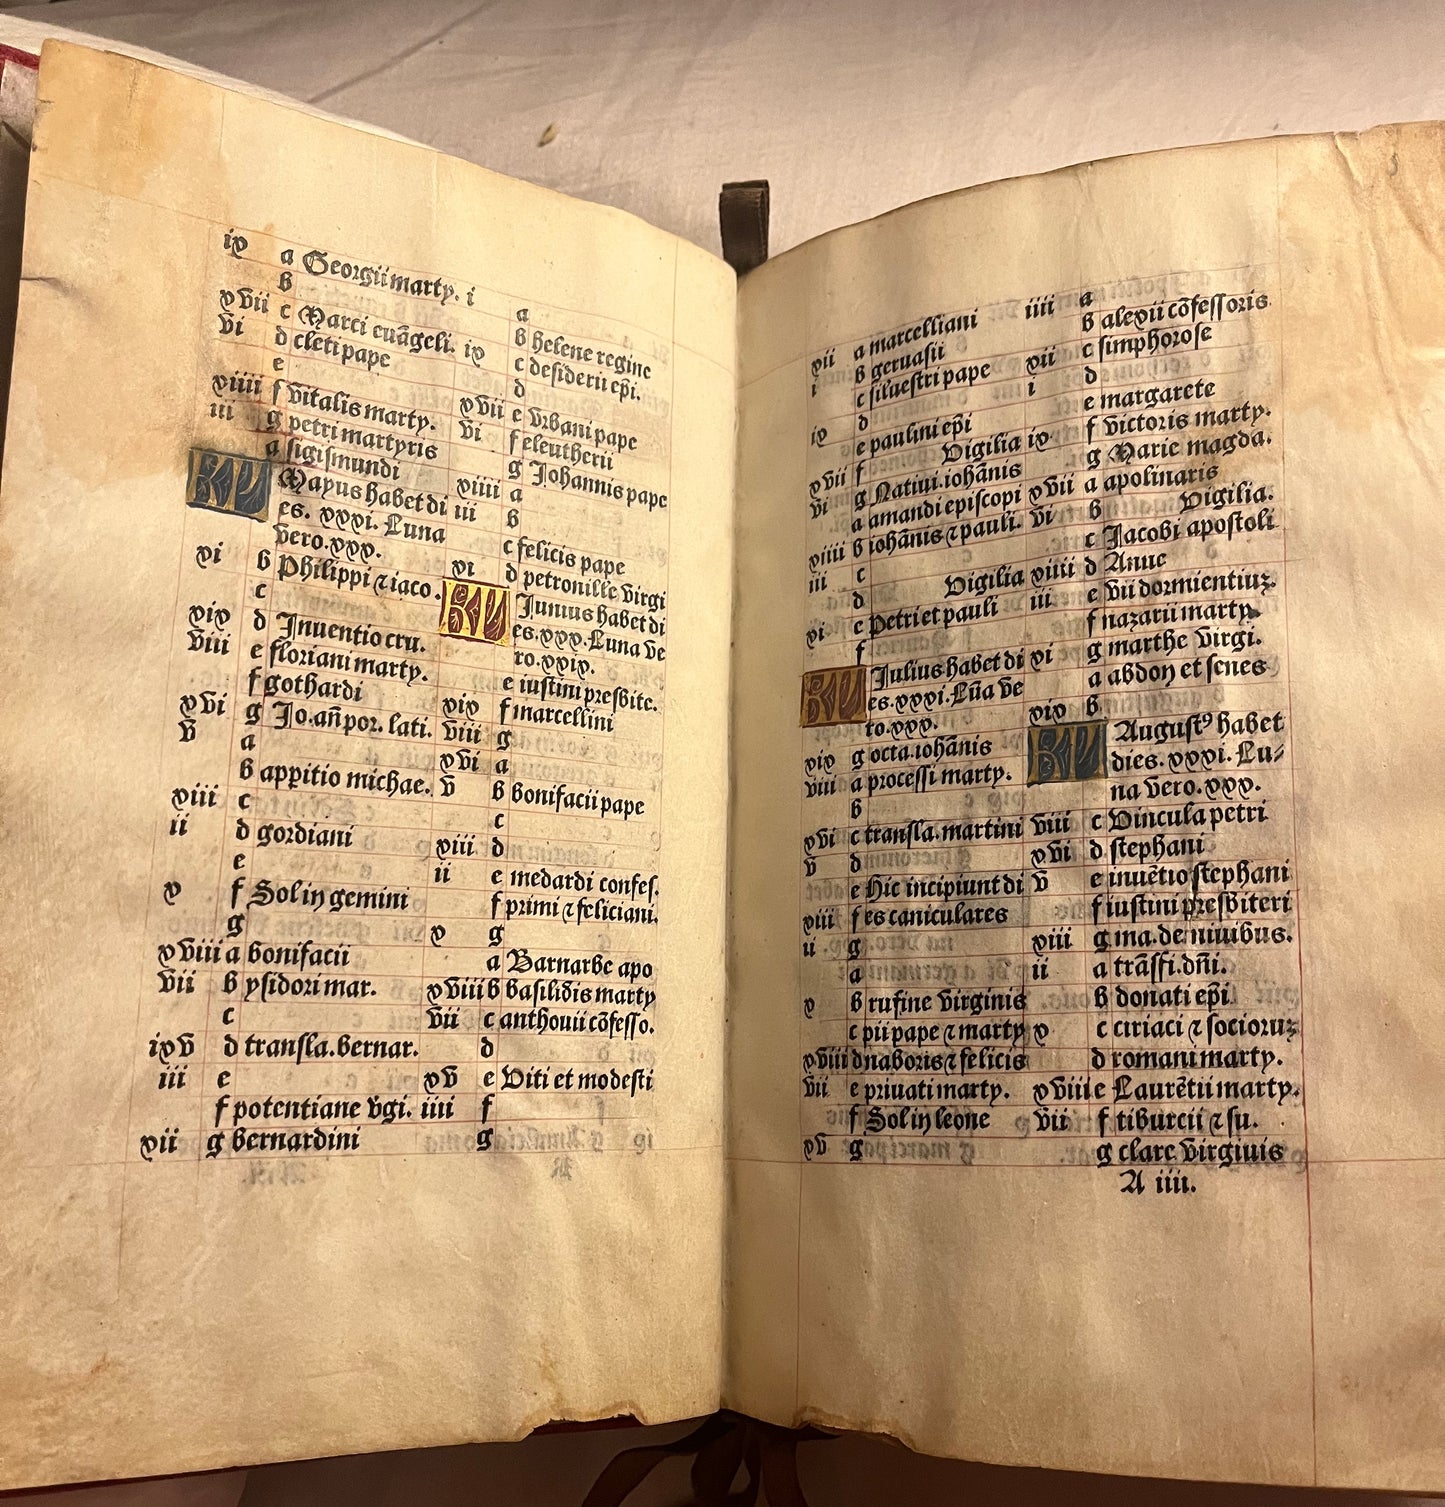 ix a Georgii marty.
b
xvii c Marci euãgeli.
vi d cleti pape
e
xiiii f vitalis marty.
iii g petri martyris
a sigismundi
KL Mayus habet di
es. xxxi. Luna
vero. xxx.
xi b Philippi ⁊ iaco.
c
xix d Inuentio cru.
viii e floriani marty.
f gothardi
xvi g Jo. añ por. lati.
v a
b appitio michae.
xiii c
ii d gordiani
e
x f Sol in gemini
g
xviii a bonifacii
vii b ysidori mar.
c
xv d transla. bernar.
iiii e
f potentiane vgi.
xii g bernardini
i a
b helene regine
ix c desiderii epi.
d
xvii e vrbani pape
vi f eleutherii
g Johannis pape
xiiii a
iii b
c felicis pape
xi d petronille virgi
KL Junius habet di
es. xxx. Luna ve
ro. xxix.
e iustini presbite.
xix f marcellini
viii g
xvi a
v b bonifacii pape
c
xiii d
ii e medardi confes.
f primi ⁊ feliciani.
x g
a Barnarbe apo
xviii b basilidis marty
vii c anthonii cõfesso.
d
xv e Viti et modesti
iiii f
g
xii a marcelliani
i b geruasii
c siluestri pape
ix d
e paulini epi
xvii f Vigilia
vi g Natiui. iohãnis
a amandi episcopi
xiiii b iohãnis ⁊ pauli.
iii c
d Vigilia
xi e Petri et pauli
f
KL Julius habet di
es. xxxi. Lũa ve
ro. xxx.
xix g octa. iohãnis
viii a processi marty.
b
xvi c transla. martini
v d
e Hic incipiunt di
xiii f es caniculares
ii g
a
x b rufine virginis
c pii pape ⁊ marty
xviii d naboris ⁊ felicis
vii e priuati marty.
f Sol in leone
xv g
iiii a
b alexii cõfessoris
xii c simphorose
i d
e margarete
ix f victoris marty.
g Marie magda.
xvii a apolinaris
vi b Vigilia.
c Jacobi apostoli
xiiii d Anne
iii e vii dormientiuꝫ.
f nazarii marty.
xi g marthe virgi.
a abdon et senes
xix b
KL Augustꝰ habet
dies. xxxi. Lu-
na vero. xxx.
viii c Vincula petri
xvi d stephani
v e inuẽtio stephani
f iustini presbiteri
xiii g ma. de niuibus.
ii a trãsfi. dñi.
b donati epi
x c ciriaci ⁊ socioruꝫ
d romani marty.
xviii e Laurẽtii marty.
vii f tiburcii ⁊ su.
g clare virginis
A iiii.